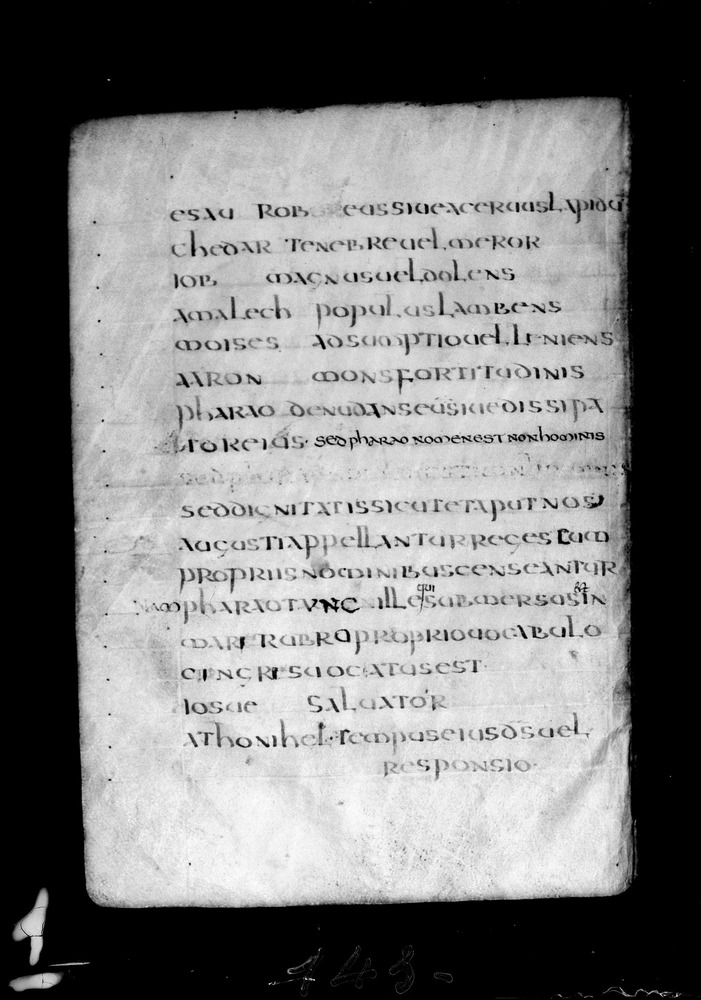 esau robeus sive acervus lapidu
chedar tenebre vel meror
iob magnus vel dolens
amalech populus lambens
moises adsumptio vel leniens
aaron mons fortitudinis
pharao denudans eus sive dissipa
tor eius. sed pharao nomen est non hominis
sed dignitatis sicut et aput nos
augusti appellantur reges cum
propriis nominibus censeantur
nam pharao tunc ille qui submersus in
mari rubro proprio vocabulo
cingris vocatus est
iosue salvator
athonihel. tempus eius ds vel
responsio.
1
143-